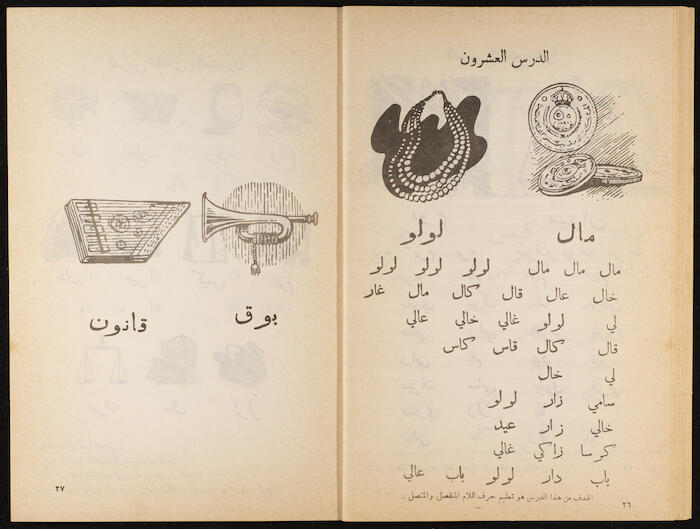 الدرس العشرون
مال لولو
مال مال مال لولو لولو لولو
خال عال قال كال مال غار
لي لولو غالي خالي عالي
قال كال قاس كاس
لي خال
سامي زار لولو
خالي زار عيد
زاكي غالي
باب دار لولو باب عالي
الهدف من هذا الدرس هو تعليم حرف اللام المنفصل والمتصل .
٢٦
بوق قانون
٢٧